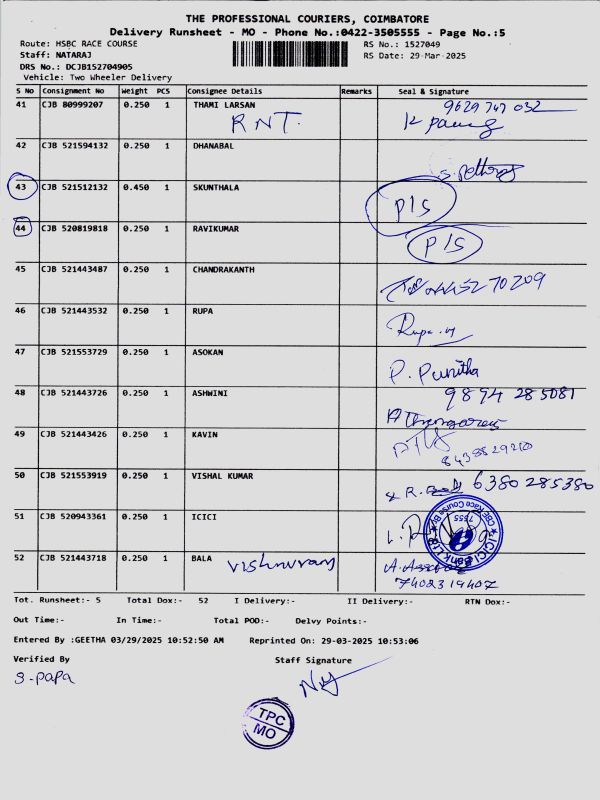 THE PROFESSIONAL COURIERS, COIMBATORE
Delivery Runsheet - MO - Phone No.:0422-3505555 - Page No.:5
Route: HSBC RACE COURSE RS No.: 1527049
Staff: NATARAJ RS Date: 29-Mar-2025
DRS No.: DCJB152704905
Vehicle: Two Wheeler Delivery
S No Consignment No Weight PCS Consignee Details Remarks Seal & Signature
41 CJB 80999207 0.250 1 THAMI LARSAN 9629747032
RNT.
42 CJB 521594132 0.250 1 DHANABAL
43 CJB 521512132 0.450 1 SKUNTHALA P/S
44 CJB 520819818 0.250 1 RAVIKUMAR P/S
45 CJB 521443487 0.250 1 CHANDRAKANTH
46 CJB 521443532 0.250 1 RUPA Rupa
47 CJB 521553729 0.250 1 ASOKAN P. Punitha
48 CJB 521443726 0.250 1 ASHWINI 9894 285081
49 CJB 521443426 0.250 1 KAVIN
50 CJB 521553919 0.250 1 VISHAL KUMAR 6380285380
51 CJB 520943361 0.250 1 ICICI
ICICI Bank Ltd CBE Race Course Br. 7555
52 CJB 521443718 0.250 1 BALA
7402319407
Tot. Runsheet:- 5 Total Dox:- 52 I Delivery:- II Delivery:- RTN Dox:-
Out Time:- In Time:- Total POD:- Delvy Points:-
Entered By :GEETHA 03/29/2025 10:52:50 AM Reprinted On: 29-03-2025 10:53:06
Verified By Staff Signature
S. PaPa
TPC
MO